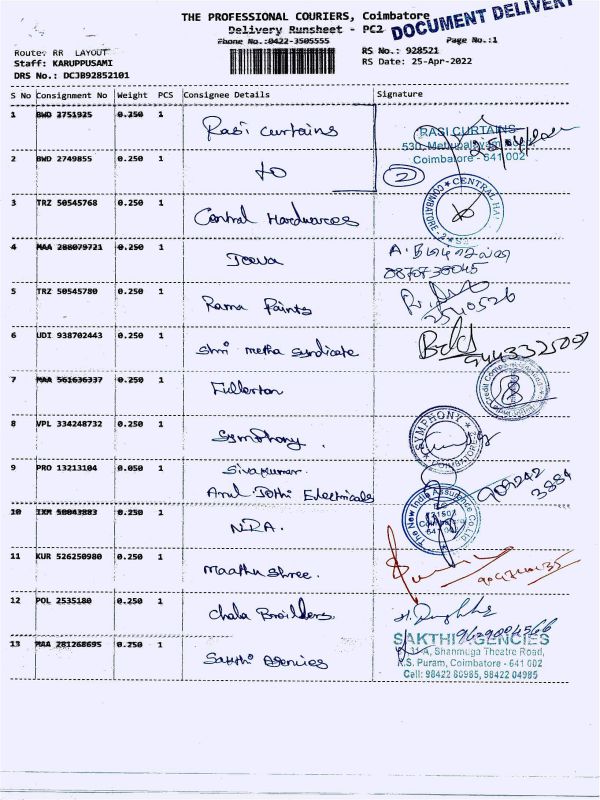 THE PROFESSIONAL COURIERS, Coimbatore
DOCUMENT DELIVERY
Delivery Runsheet - PC2
Phone No.:0422-3505555
Page No.:1
Route: RR LAYOUT
RS No.: 928521
Staff: KARUPPUSAMI
RS Date: 25-Apr-2022
DRS No.: DCJB92852101
S No Consignment No Weight PCS Consignee Details Signature
1 BWD 2751925 0.250 1 Rasi curtains
RASI CURTAINS
530, Mettupalayam
Coimbatore - 641 002
2 BWD 2749855 0.250 1 to
2
3 TRZ 50545768 0.250 1 Central Hardwares
CENTRAL HA
COIMBATORE - 2
4 MAA 288079721 0.250 1 Jeeva
5 TRZ 50545780 0.250 1 Rama Paints
2540526
6 UDI 938702443 0.250 1 Shri metha syndicate
9443325009
7 MAA 561636337 0.250 1 Fullerton
8 VPL 334248732 0.250 1 Symphony.
SYMPHONY
COIMBATORE
9 PRO 13213104 0.050 1 Sivakumar.
Arul Jothi Electricals
909242
3884
10 IXM 50043883 0.250 1 NIA.
The New India Assurance Co Ltd
11 KUR 526250980 0.250 1 Maathu Shree.
12 POL 2535180 0.250 1 Chola Builders
9629004566
13 MAA 281268695 0.250 1 Sakthi Agencies
SAKTHI AGENCIES
11-A, Shanmuga Theatre Road,
R.S. Puram, Coimbatore - 641 002
Cell: 98422 80985, 98422 04985